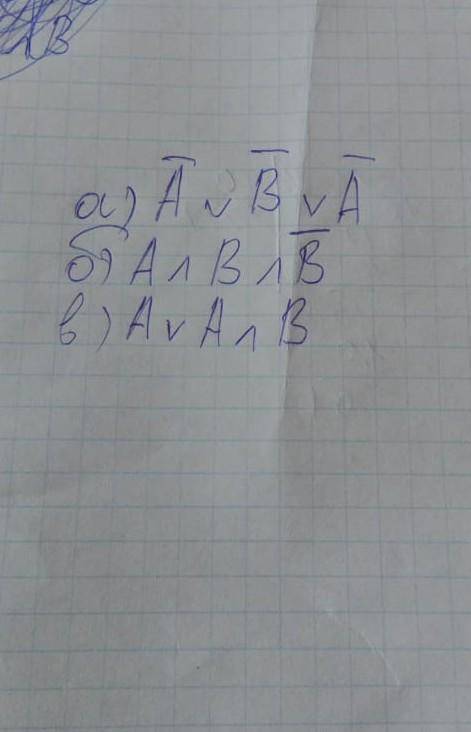 B
а) A̅ ∨ B̅ ∨ A̅
б) A ∧ B ∧ B̅
в) A ∨ A ∧ B